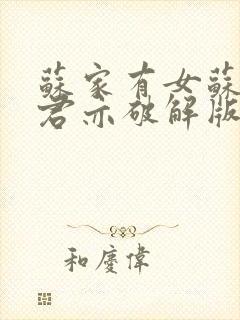 蘇家有女蘇
君亦破解版
和慶偉